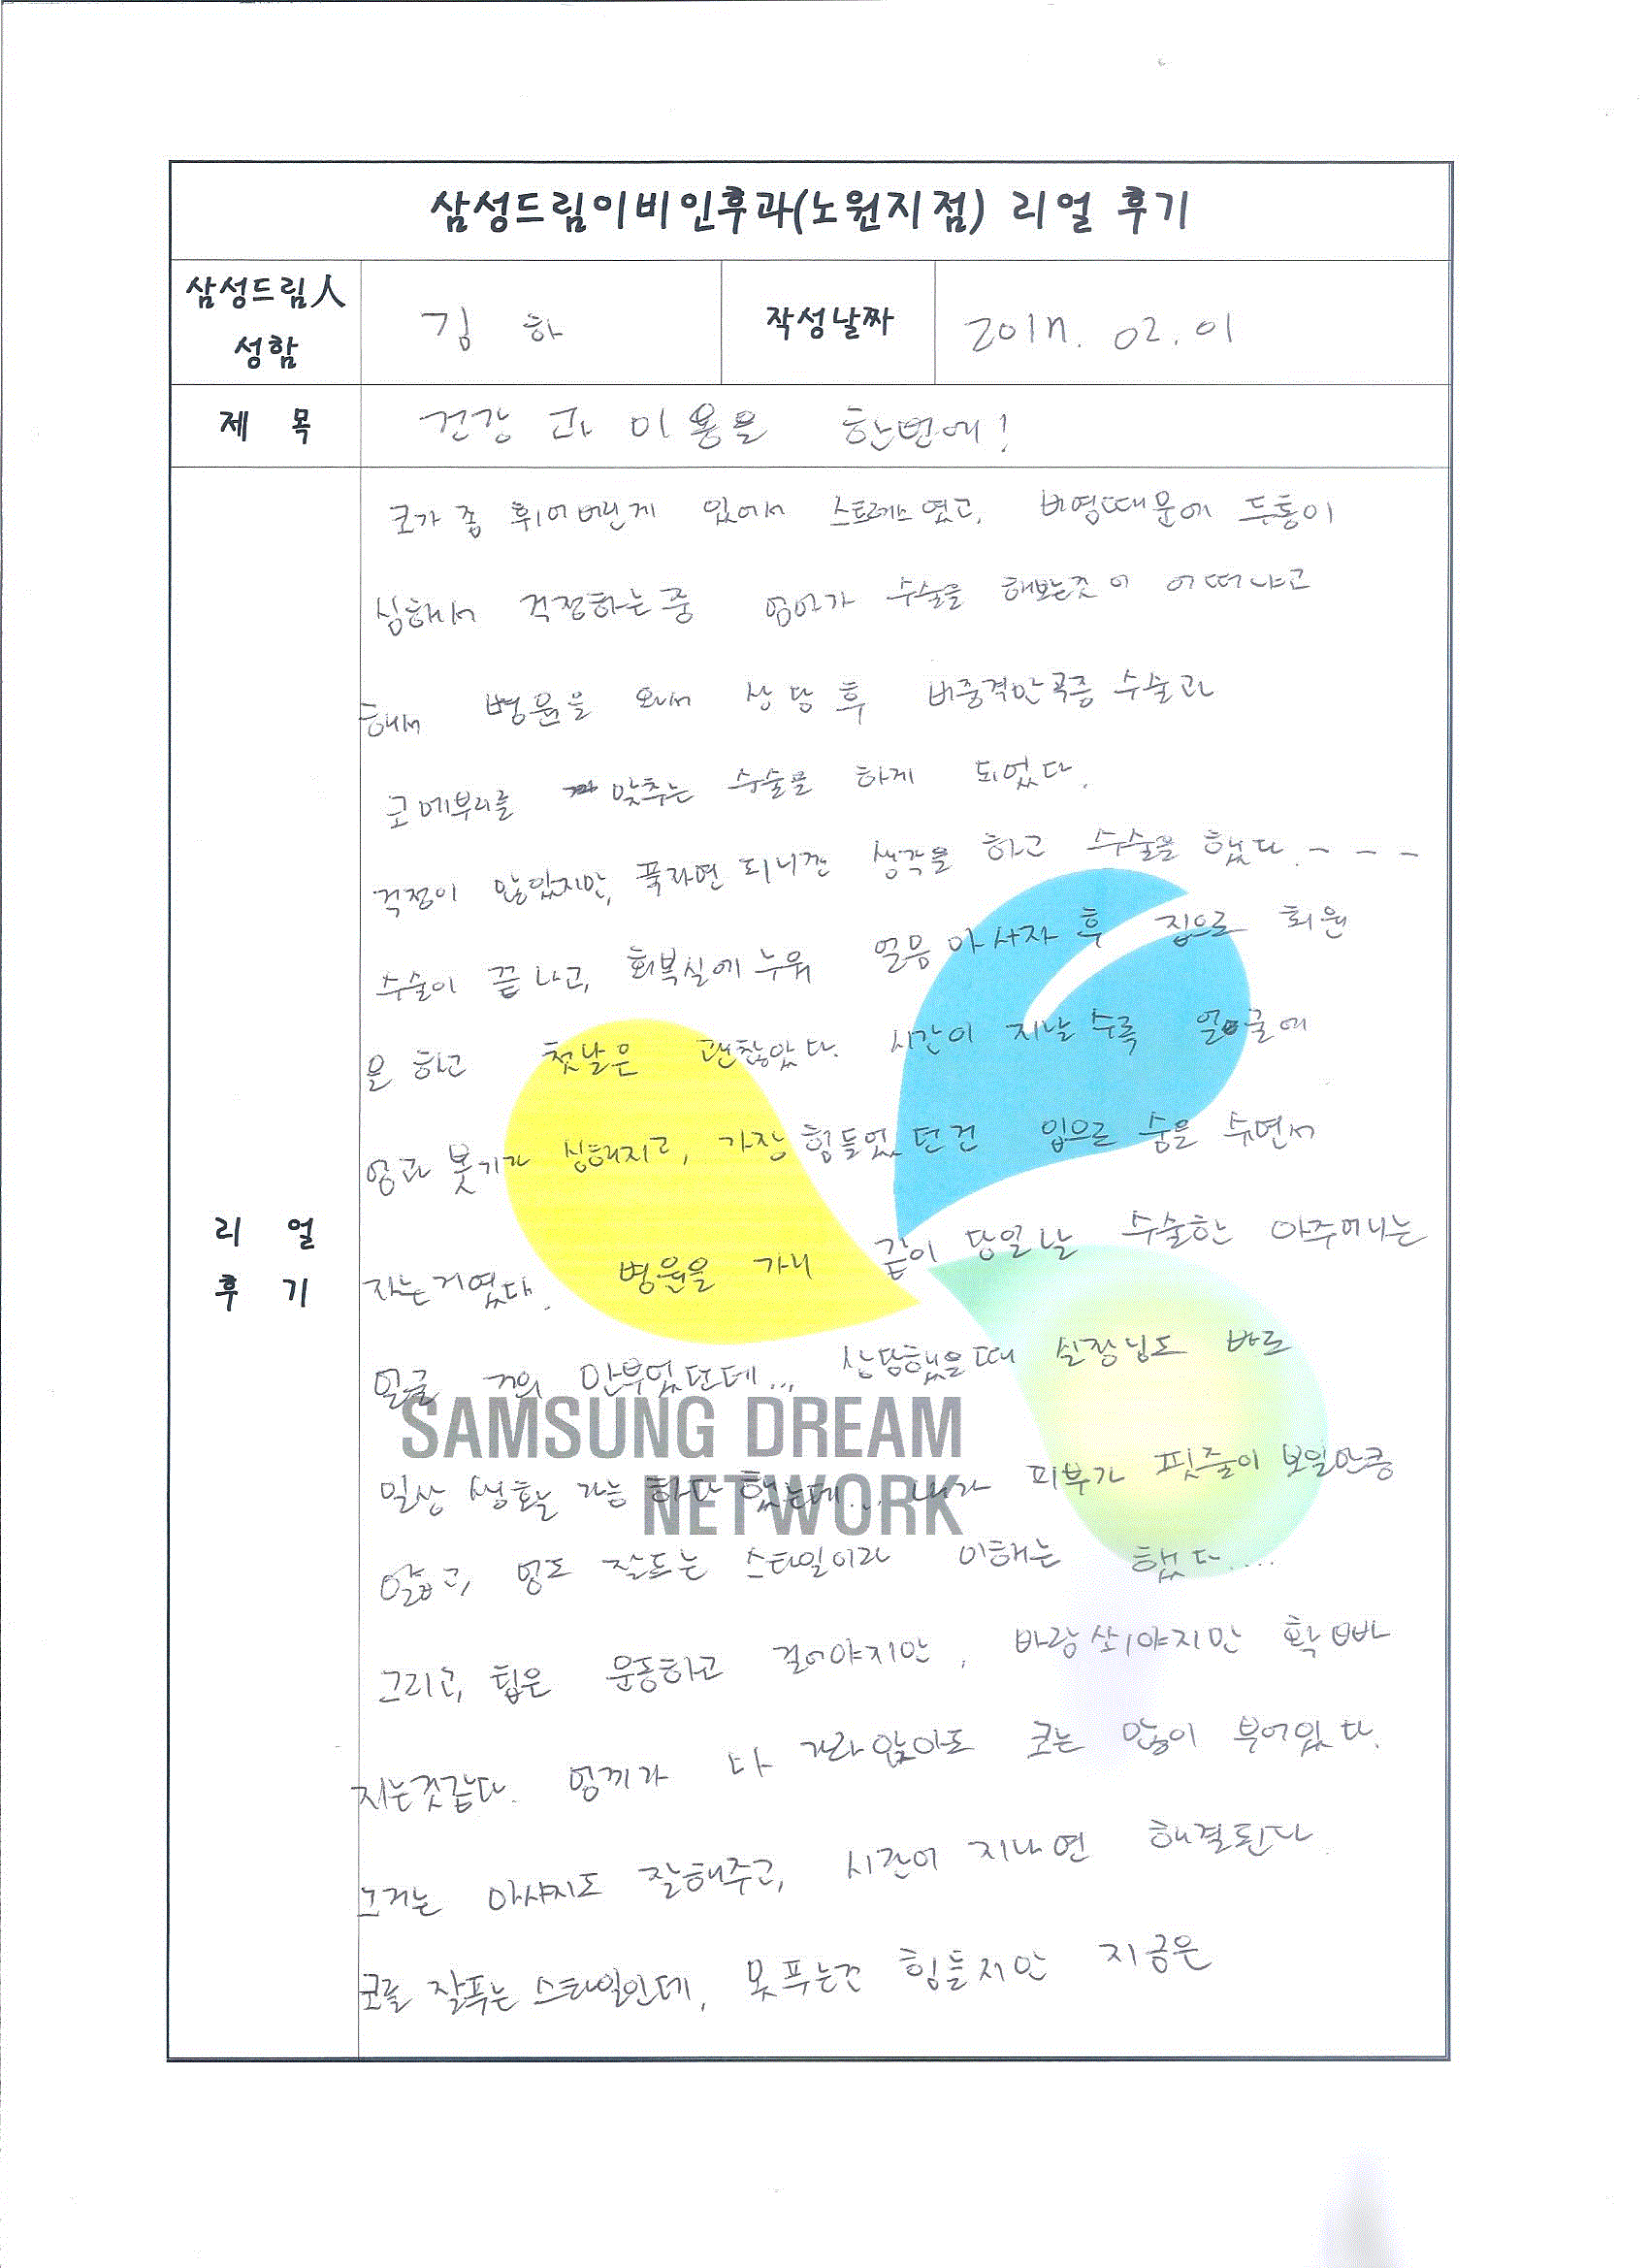 삼성드림이비인후과(노원지점) 리얼 후기
삼성드림人
성함
김 하
작성날짜
2017. 02. 01
제 목
건강 과 미용을 한번에!
리 얼
후 기
코가 좀 휘어버린게 있어서 스트레스였고, 비염때문에 두통이
심해서 걱정하는중 엄마가 수술을 해보는것이 어떠냐고
해서 병원을 와서 상담 후 비중격만곡증 수술과
코메부리를 맞추는 수술을 하게 되었다.
걱정이 많았지만, 푹자면 되니깐 생각을 하고 수술을 했다. - - -
수술이 끝나고, 회복실에 누워 얼음 마사지 후 집으로 회원
을 하고 첫날은 괜찮았다. 시간이 지날 수록 얼굴에
멍과 붓기가 심해지고, 가장 힘들었던건 입으로 숨을 쉬면서
자는거였다. 병원을 가니 같이 당일날 수술한 아주머니는
얼굴 거의 안부었던데... 상담했을때 실장님도 바로
일상 생활 가능 하다 했는데... 내가 피부가 핏줄이 보일만큼
얇고, 멍도 잘드는 스타일이라 이해는 했다....
그리고, 팁은 운동하고 걸어야지만, 바람쐬야지만 확 빠
지는것같다. 멍끼가 다 가라앉아도 코는 많이 부어있다.
그거는 마사지도 잘해주고, 시간이 지나면 해결된다.
코를 잘푸는 스타일인데, 못푸는건 힘들지만 지금은
SAMSUNG DREAM
NETWORK